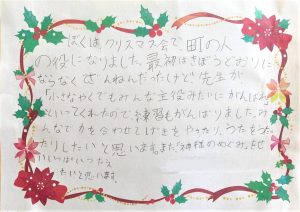 ぼくは、クリスマス会で、町の人
の役になりました。最初はきぼうどおりに
ならなくてざんねんだったけど先生が
「小さなやくでもみんな主役みたいにがんばれ」
といってくれたので練習もがんばりました。み
んなで力を合わせてげきをやったり、うたをうた
ったりしたいと思います。また「神様のめぐみ」を
いっぱいつたえ
たいと思います。